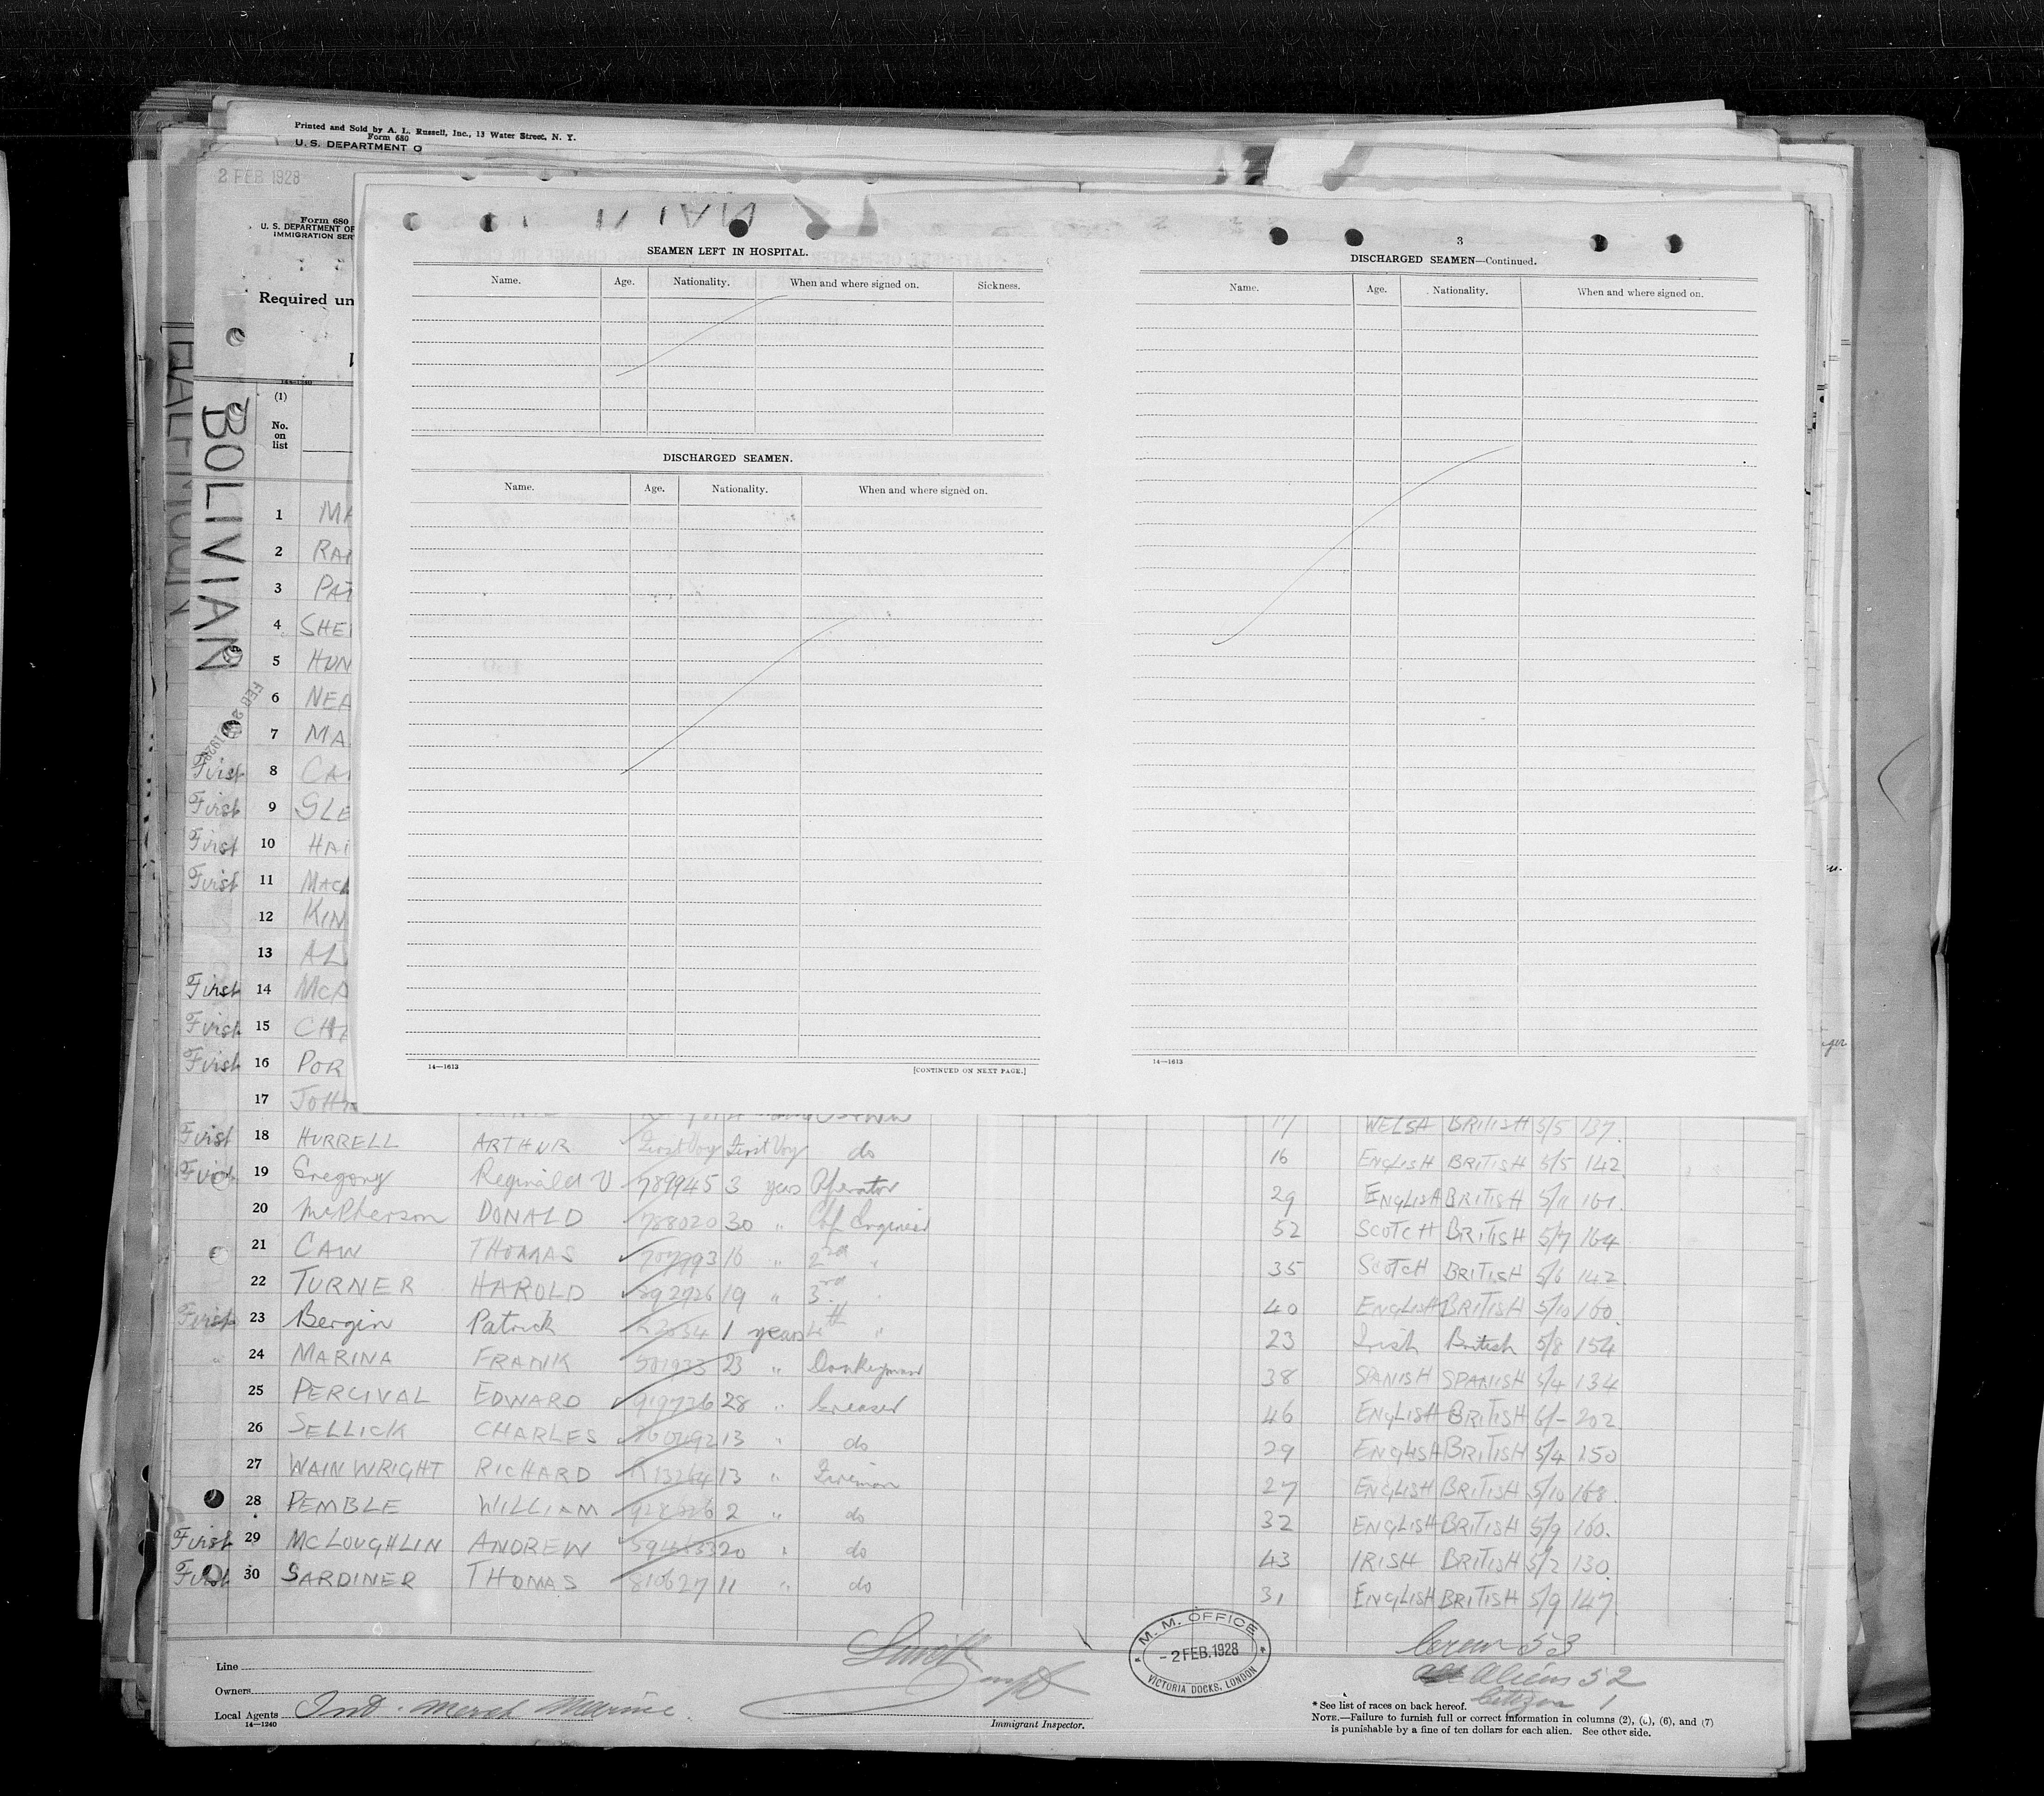 Printed and Sold by A. L. Russell, Inc., 13 Water Street, N. Y.
Form 680
U. S. DEPARTMENT O
2 FEB 1928
Form 680
U. S. DEPARTMENT OF
IMMIGRATION SER
Required un
14-1240
BOLIVIAN
(1)
No. on list
SEAMEN LEFT IN HOSPITAL.
Name. Age. Nationality. When and where signed on. Sickness.
DISCHARGED SEAMEN.
Name. Age. Nationality. When and where signed on.
14—1613
[CONTINUED ON NEXT PAGE.]
3
DISCHARGED SEAMEN—Continued.
Name. Age. Nationality. When and where signed on.
14—1613
1 MA
2 RAI
3 PAT
4 SHE
5 HUN
6 NEA
7 MA
First 8 CA
First 9 GLE
First 10 HAI
First 11 MAC
12 KIN
13 AL
First 14 McA
First 15 CHA
First 16 POR
17 JOHN 17 WELSH BRITISH 5/5 137.
First 18 HURRELL ARTHUR First Voy First Voy do 16 ENGLISH BRITISH 5/5 142
First 19 Gregory Reginald V 789945 3 years Operator 29 ENGLISH BRITISH 5/11 161.
20 McPherson DONALD 788020 30 " Chf Engineer 52 SCOTCH BRITISH 5/7 164
21 CAW THOMAS 16 " 2nd " 35 SCOTCH BRITISH 5/6 142.
22 TURNER HAROLD 892926 19 " 3rd " 40 ENGLISH BRITISH 5/10 160.
First 23 Bergin Patrick 1 years 4th " 23 Irish British 5/8 154
" 24 MARINA FRANK 501933 23 " Donkeyman 38 SPANISH SPANISH 5/4 134
25 PERCIVAL EDWARD 919726 28 " Greaser 46 ENGLISH BRITISH 6/- 202
26 SELLICK CHARLES 13 " do 29 ENGLISH BRITISH 5/4 150
27 WAINWRIGHT RICHARD 13 " Fireman 27 ENGLISH BRITISH 5/10 168.
28 PEMBLE WILLIAM 2 " do 32 ENGLISH BRITISH 5/9 160.
First 29 MCLOUGHLIN ANDREW 20 " do 43 IRISH BRITISH 5/2 130.
First 30 GARDINER THOMAS 810627 11 " do 31 ENGLISH BRITISH 5/9 147.
Line
Owners
Local Agents Int. Merch Marine.
14—1240
Immigrant Inspector.
M. M. OFFICE
- 2 FEB. 1928
VICTORIA DOCKS, LONDON
Crew 53
Aliens 52
Citizen 1
* See list of races on back hereof.
NOTE.—Failure to furnish full or correct information in columns (2), (5), (6), and (7)
is punishable by a fine of ten dollars for each alien. See other side.